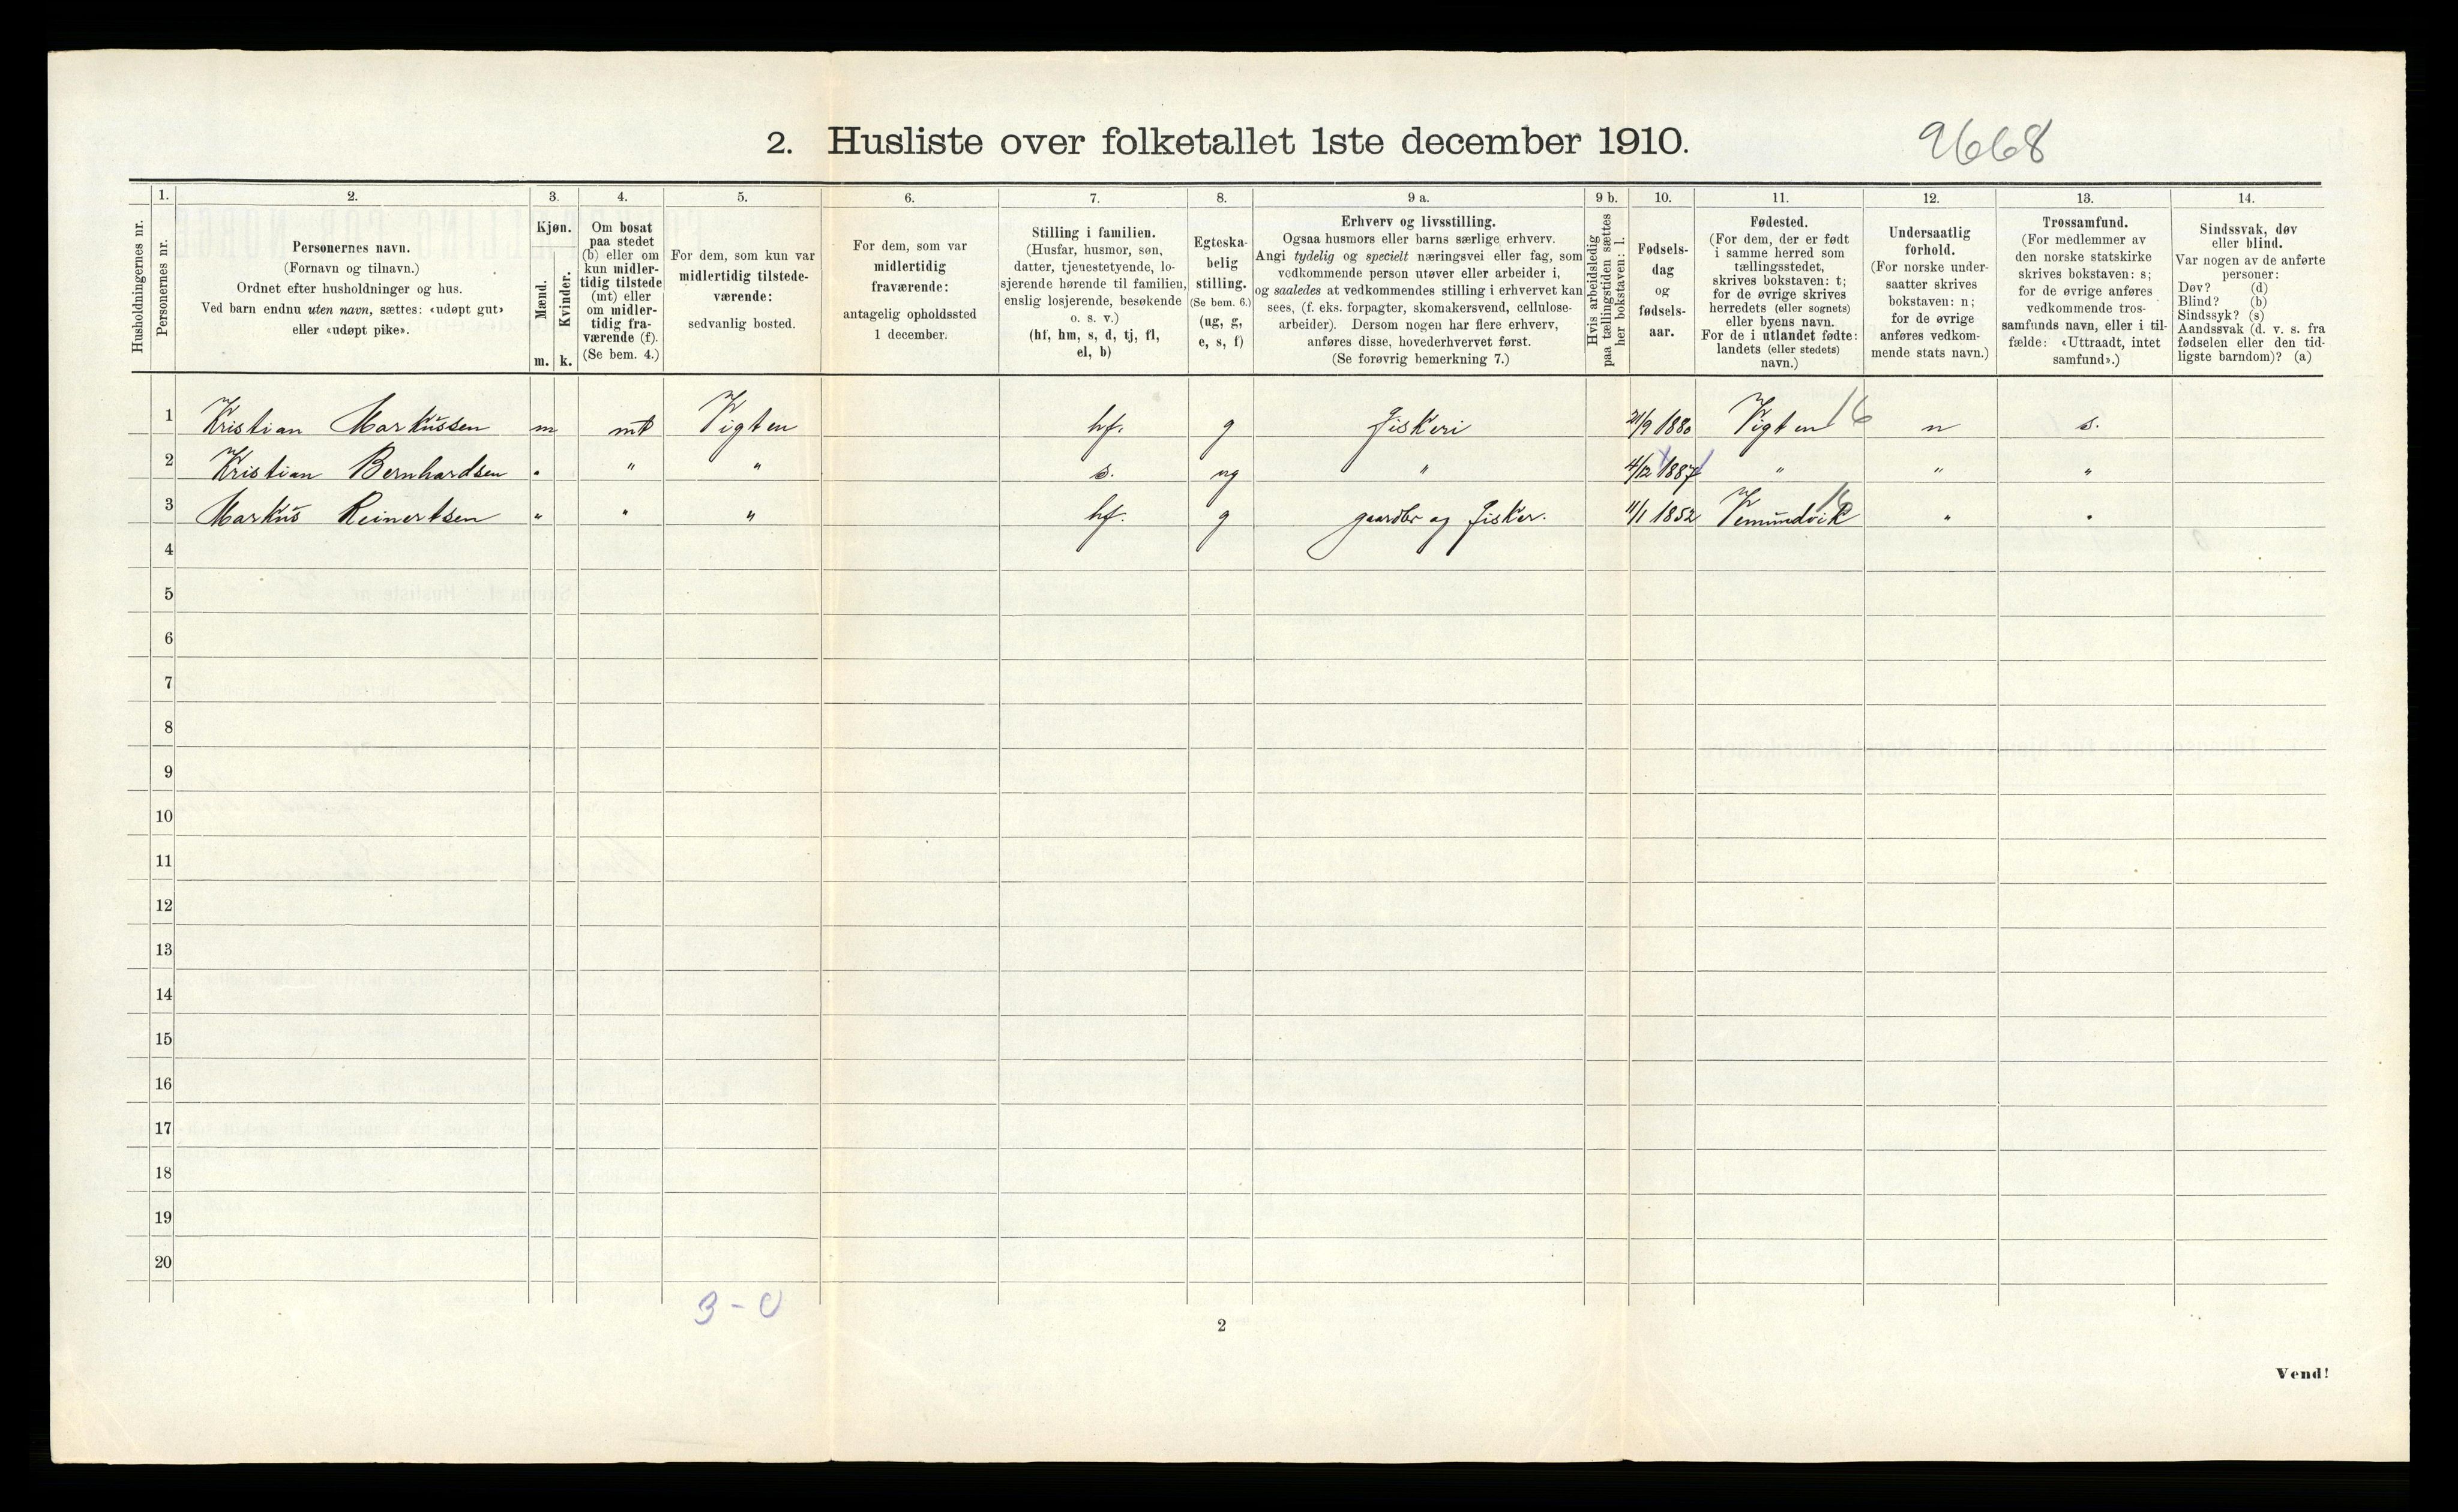 2. Husliste over folketallet 1ste december 1910.
9668
Husholdningernes nr.
1.
Personernes nr.
2.
Personernes navn.
(Fornavn og tilnavn.)
Ordnet efter husholdninger og hus.
Ved barn endnu uten navn, sættes: «udøpt gut»
eller «udøpt pike».
3.
Kjøn.
Mænd.
m.
Kvinder.
k.
4.
Om bosat
paa stedet
(b) eller om
kun midler-
tidig tilstede
(mt) eller
om midler-
tidig fra-
værende (f).
(Se bem. 4.)
5.
For dem, som kun var
midlertidig tilstede-
værende:
sedvanlig bosted.
6.
For dem, som var
midlertidig
fraværende:
antagelig opholdssted
1 december.
7.
Stilling i familien.
(Husfar, husmor, søn,
datter, tjenestetyende, lo-
sjerende hørende til familien,
enslig losjerende, besøkende
o. s. v.)
(hf, hm, s, d, tj, fl,
el, b)
8.
Egteska-
belig
stilling.
(Se bem. 6.)
(ug, g,
e, s, f)
9 a.
Erhverv og livsstilling.
Ogsaa husmors eller barns særlige erhverv.
Angi tydelig og specielt næringsvei eller fag, som
vedkommende person utøver eller arbeider i,
og saaledes at vedkommendes stilling i erhvervet kan
sees, (f. eks. forpagter, skomakersvend, cellulose-
arbeider). Dersom nogen har flere erhverv,
anføres disse, hovederhvervet først.
(Se forøvrig bemerkning 7.)
9 b.
Hvis arbeidsledig
paa tællingstiden sættes
her bokstaven: l.
10.
Fødsels-
dag
og
fødsels-
aar.
11.
Fødested.
(For dem, der er født
i samme herred som
tællingsstedet,
skrives bokstaven: t;
for de øvrige skrives
herredets (eller sognets)
eller byens navn.
For de i utlandet fødte:
landets (eller stedets)
navn.)
12.
Undersaatlig
forhold.
(For norske under-
saatter skrives
bokstaven: n;
for de øvrige
anføres vedkom-
mende stats navn.)
13.
Trossamfund.
(For medlemmer av
den norske statskirke
skrives bokstaven: s;
for de øvrige anføres
vedkommende tros-
samfunds navn, eller i til-
fælde: «Uttraadt, intet
samfund».)
14.
Sindssvak, døv
eller blind.
Var nogen av de anførte
personer:
Døv? (d)
Blind? (b)
Sindssyk? (s)
Aandssvak (d. v. s. fra
fødselen eller den tid-
ligste barndom)? (a)
1 Kristian Markussen m mt Vigten hf. g Fiskeri /9 1880 Vigten 16 n s.
2 Kristian Bernhardsen " " " s. ug " 4/12 1887 " " "
3 Markus Reinertsen " " " hf. g gaardbr og Fisker. 11/1 1852 Vemundvik 16 " "
4
5
6
7
8
9
10
11
12
13
14
15
16
17
18
19
20
3 - 0
2
Vend!